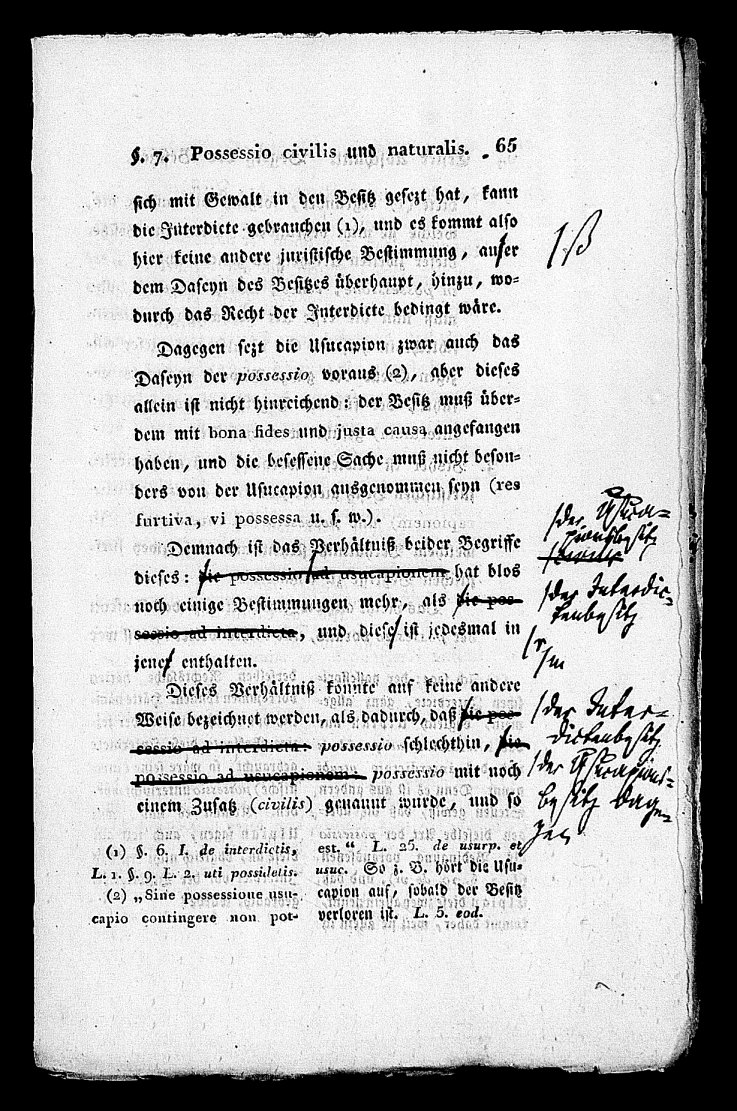 §. 7. Possessio civilis und naturalis. 65
sich mit Gewalt in den Besitz gesezt hat, kann
die Interdicte gebrauchen (1), und es kommt also
hier keine andere juristische Bestimmung, auser
dem Daseyn des Besitzes überhaupt, hinzu, wo-
durch das Recht der Interdicte bedingt wäre.
Dagegen sezt die Usucapion zwar auch das
Daseyn der possessio voraus (2), aber dieses
allein ist nicht hinreichend: der Besitz muß über-
dem mit bona fides und justa causa angefangen
haben, und die besessene Sache muß nicht beson-
ders von der Usucapion ausgenommen seyn (res
furtiva, vi possessa u. s. w.).
Demnach ist das Verhältniß beider Begriffe
dieses: die possessio ad usucapionem hat blos
noch einige Bestimmungen mehr, als die pos-
sessio ad interdicta, und diese ist jedesmal in
jener enthalten.
Dieses Verhältniß konnte auf keine andere
Weise bezeichnet werden, als dadurch, daß die pos-
sessio ad interdicta: possessio schlechthin, die
possessio ad usucapionem: possessio mit noch
einem Zusatz (civilis) genannt wurde, und so
(1) §. 6. I. de interdictis,
L. 1. §. 9. L. 2. uti possidetis.
(2) „Sine possessione usu-
capio contingere non pot-
est.“ L. 25. de usurp. et
usuc. So z. B. hört die Usu-
capion auf, sobald der Besitz
verloren ist. L. 5. eod.
ß
der Usuca-
pionsbesitz
der Interdic-
tenbesitz
r
m
der Inter-
dictenbesitz
der Usucapions-
besitz dage-
gen